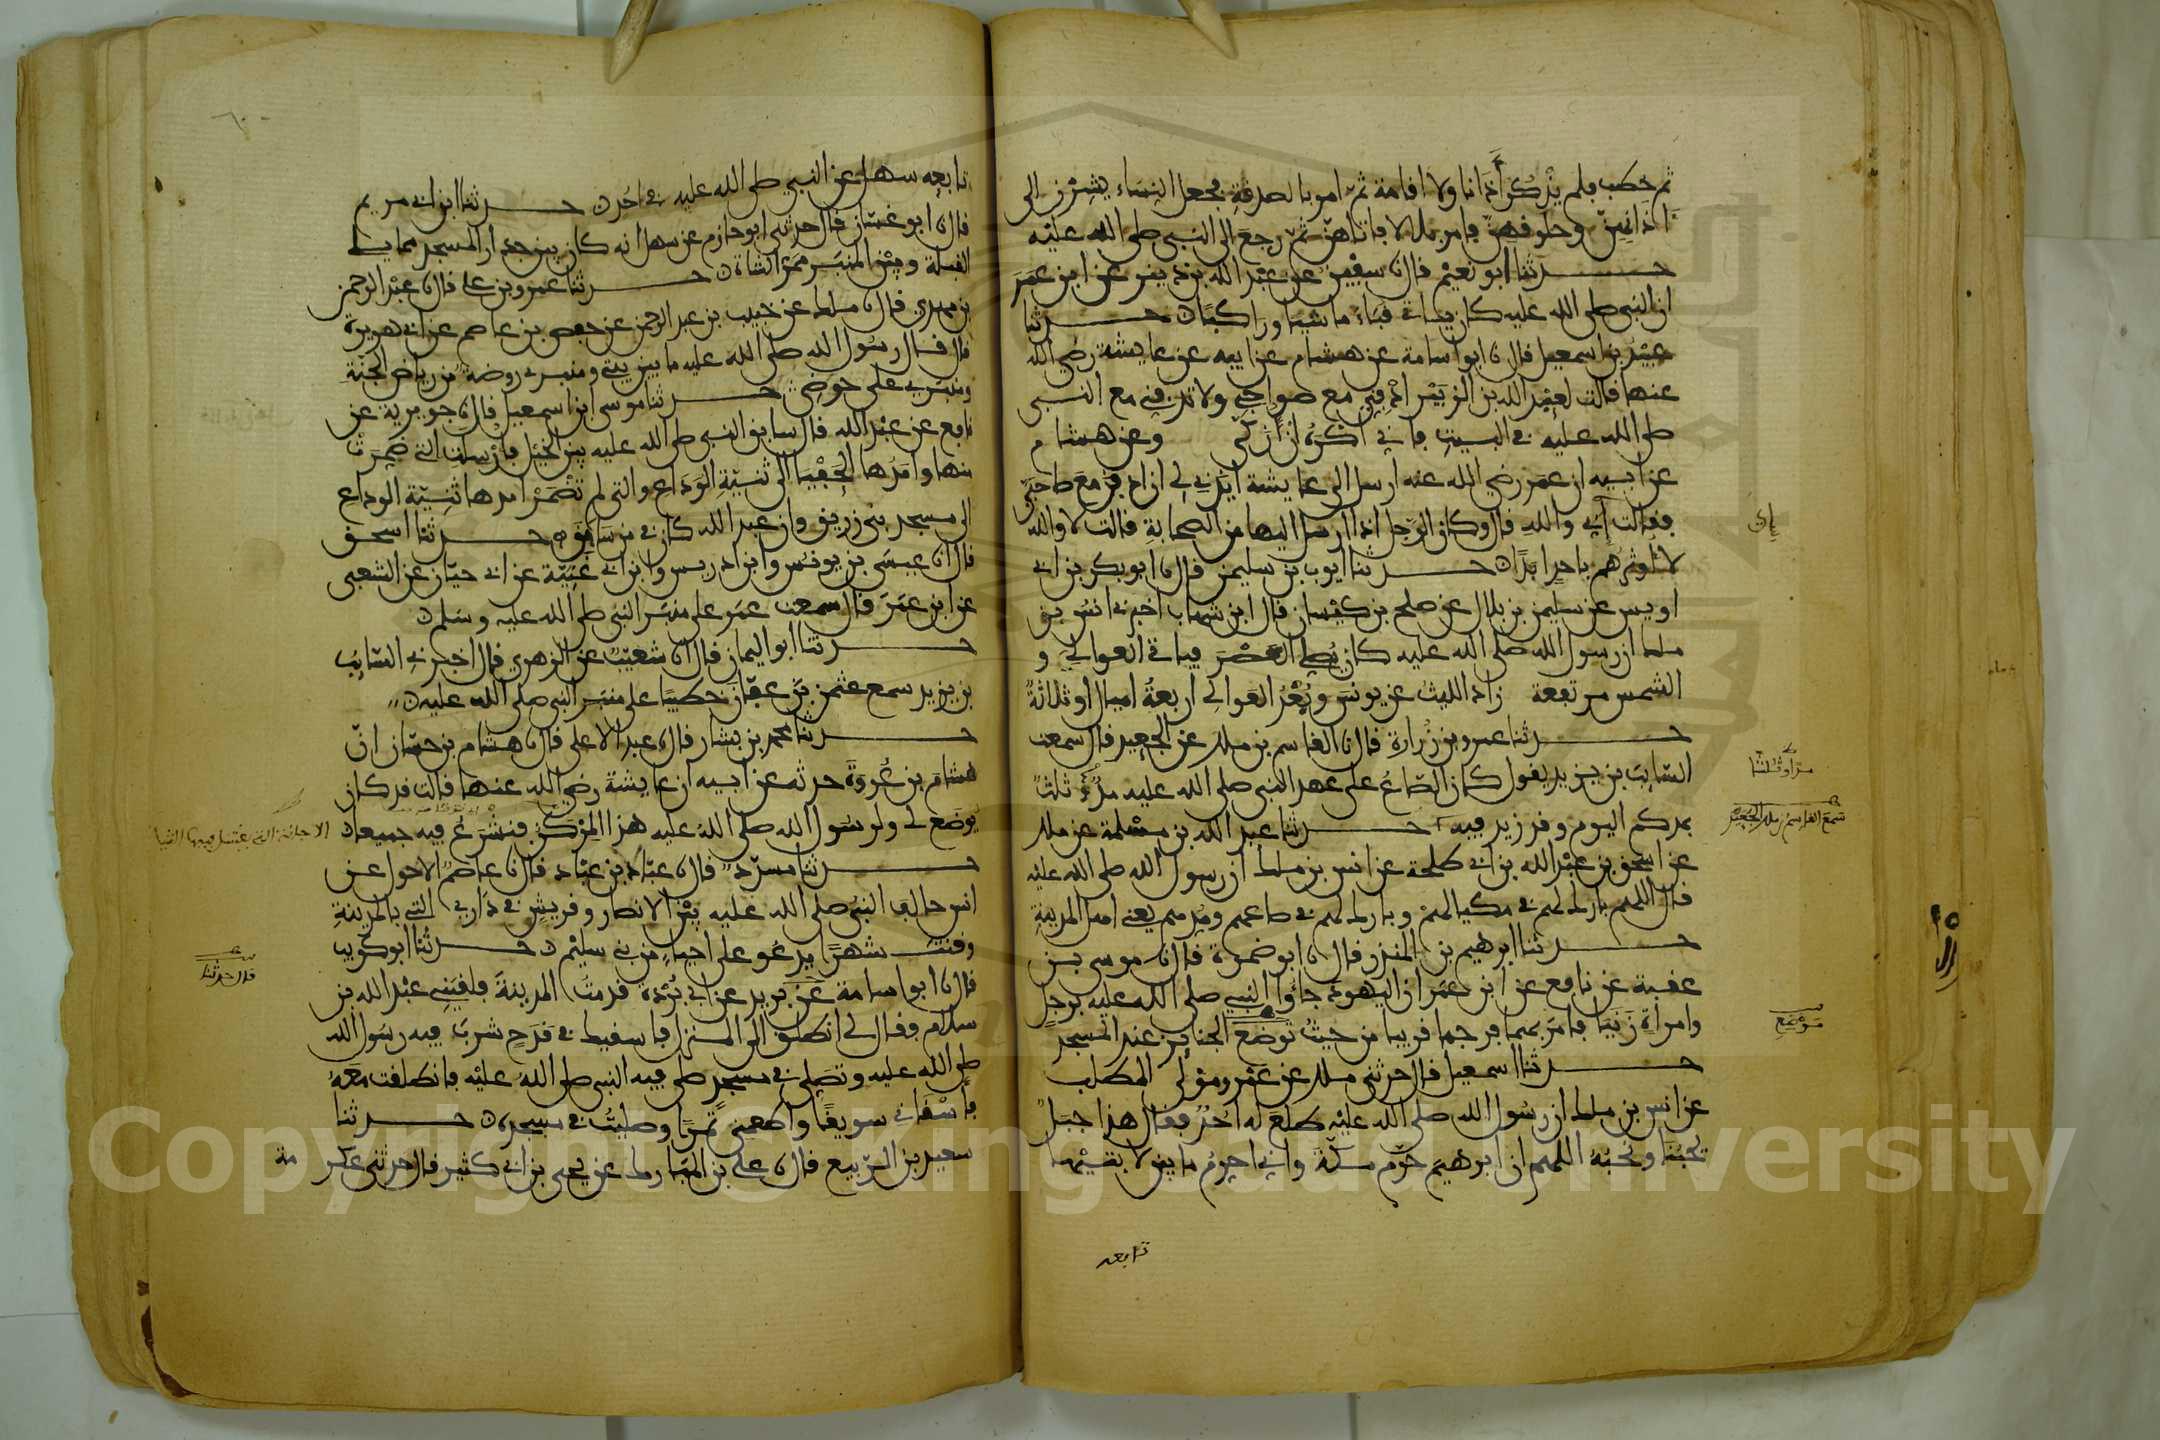 ثم خطب فلم يذكر أذانا ولا اقامة ثم امر بالصدقة فجعل النساء يشرن الى
اذانهن وحلوقهن فامر بلالا فاتاهن ثم رجع الى النبي صلى الله عليه
حدثنا ابو نعيم قال نا سفين عن عبد الله بن دينر عن ابن عمر
ان النبي صلى الله عليه كان ياتي قباء ماشيا وراكبا حدثنا
عبيد بن اسمعيل قال نا ابو اسامة عن هشام عن ابيه عن عايشة رضي الله
عنها قالت لعبد الله بن الزبير ادفني مع صواحبي ولا تدفني مع النبي
صلى الله عليه في البيت فاني اكره ان ازكى وعن هشام
عن ابيه ان عمر رضي الله عنه ارسل الى عايشة ايذني لي ان ادفن مع صاحبي
فقالت اي والله قال وكان الرجل اذا ارسل اليها من الصحابة قالت لا والله
لا اوثرهم باحد ابدا حدثنا ايوب بن سليمن قال نا ابو بكر بن ابي
اويس عن سليمن بن بلال عن صلح بن كيسان قال ابن شهاب اخبرني انس بن
ملك ان رسول الله صلى الله عليه كان يصلي العصر فياتي العوالي و
الشمس مرتفعة زاد الليث عن يونس وبعد العوالي اربعة اميال او ثلاثة
حدثنا عمرو بن زرارة قال نا القاسم بن ملك عن الجعيد قال سمعت
السايب بن يزيد يقول كان الصاع على عهد النبي صلى الله عليه مد وثلث
بمدكم اليوم وقد زيد فيه حدثنا عبد الله بن مسلمة عن ملك
عن اسحق بن عبد الله بن ابي طلحة عن انس بن ملك ان رسول الله صلى الله عليه
قال اللهم بارك لهم في مكيالهم وبارك لهم في صاعهم ومدهم يعني اهل المدينة
حدثنا ابرهيم بن المنذر قال نا ابو ضمرة قال نا موسى بن
عقبة عن نافع عن ابن عمر ان اليهود جاءوا النبي صلى الله عليه برجل
وامراة زنيا فامر بهما فرجما قريبا من حيث توضع الجنايز عند المسجد
حدثنا اسمعيل قال حدثني ملك عن عمرو مولى المطلب
عن انس بن ملك ان رسول الله صلى الله عليه طلع له احد فقال هذا جبل
يحبنا ونحبه اللهم ان ابرهيم حرم مكة واني احرم ما بين لابتيها
تابعه
مدا وثلثا
سمع القاسم بن ملك الجعيد
موضع
تابعه سهل عن النبي صلى الله عليه في احد حدثنا ابن ابي مريم
قال نا ابو غسان قال حدثني ابو حازم عن سهل انه كان بين جدار المسجد مما يلي
القبلة وبين المنبر ممر الشاة حدثنا عمرو بن علي قال نا عبد الرحمن
بن مهدي قال نا ملك عن خبيب بن عبد الرحمن عن حفص بن عاصم عن ابي هريرة
قال قال رسول الله صلى الله عليه ما بين بيتي ومنبري روضة من رياض الجنة
ومنبري على حوضي حدثنا موسى ابن اسمعيل قال نا جويرية عن
نافع عن عبد الله قال سابق النبي صلى الله عليه بين الخيل فارسلت التي ضمرت
منها وامدها الحفيا الى ثنية الوداع والتي لم تضمر امدها ثنية الوداع
الى مسجد بني زريق وان عبد الله كان في من سابق حدثنا اسحق
قال انا عيسى بن يونس وابن ادريس وابن ابي غنية عن ابي حيان عن الشعبي
عن ابن عمر قال سمعت عمر على منبر النبي صلى الله عليه وسلم
حدثنا ابو اليمان قال انا شعيب عن الزهري قال اخبرني السايب
بن يزيد سمع عثمن بن عفان خطيبا على منبر النبي صلى الله عليه
حدثنا محمد بن بشار قال نا عبد الاعلى قال نا هشام بن حسان ان
هشام بن عروة حدثه عن ابيه ان عايشة رضي الله عنها قالت قد كان
يوضع لي ولرسول الله صلى الله عليه هذا المركن فنشرع فيه جميعا
حدثنا مسدد قال نا عباد بن عباد قال نا عاصم الاحول عن
انس حالف النبي صلى الله عليه بين الانصار وقريش في داري التي بالمدينة
وقنت شهرا يدعو على احياء من بني سليم حدثنا ابو كريب
قال نا ابو اسامة عن بريد عن ابي بردة قدمت المدينة فلقيني عبد الله بن
سلام فقال لي انطلق الى المنزل فاسقيك في قدح شرب فيه رسول الله
صلى الله عليه وتصلي في مسجد صلى فيه النبي صلى الله عليه فانطلقت معه
فاسقاني سويقا واطعمني تمرا وصليت في مسجده حدثنا
سعيد بن الربيع قال نا علي بن المبارك عن يحيى بن ابي كثير قال حدثني عكر مة
الاجانة التي يغتسل فيها الثيا
قال حدثنا
Copyright © King Saud University